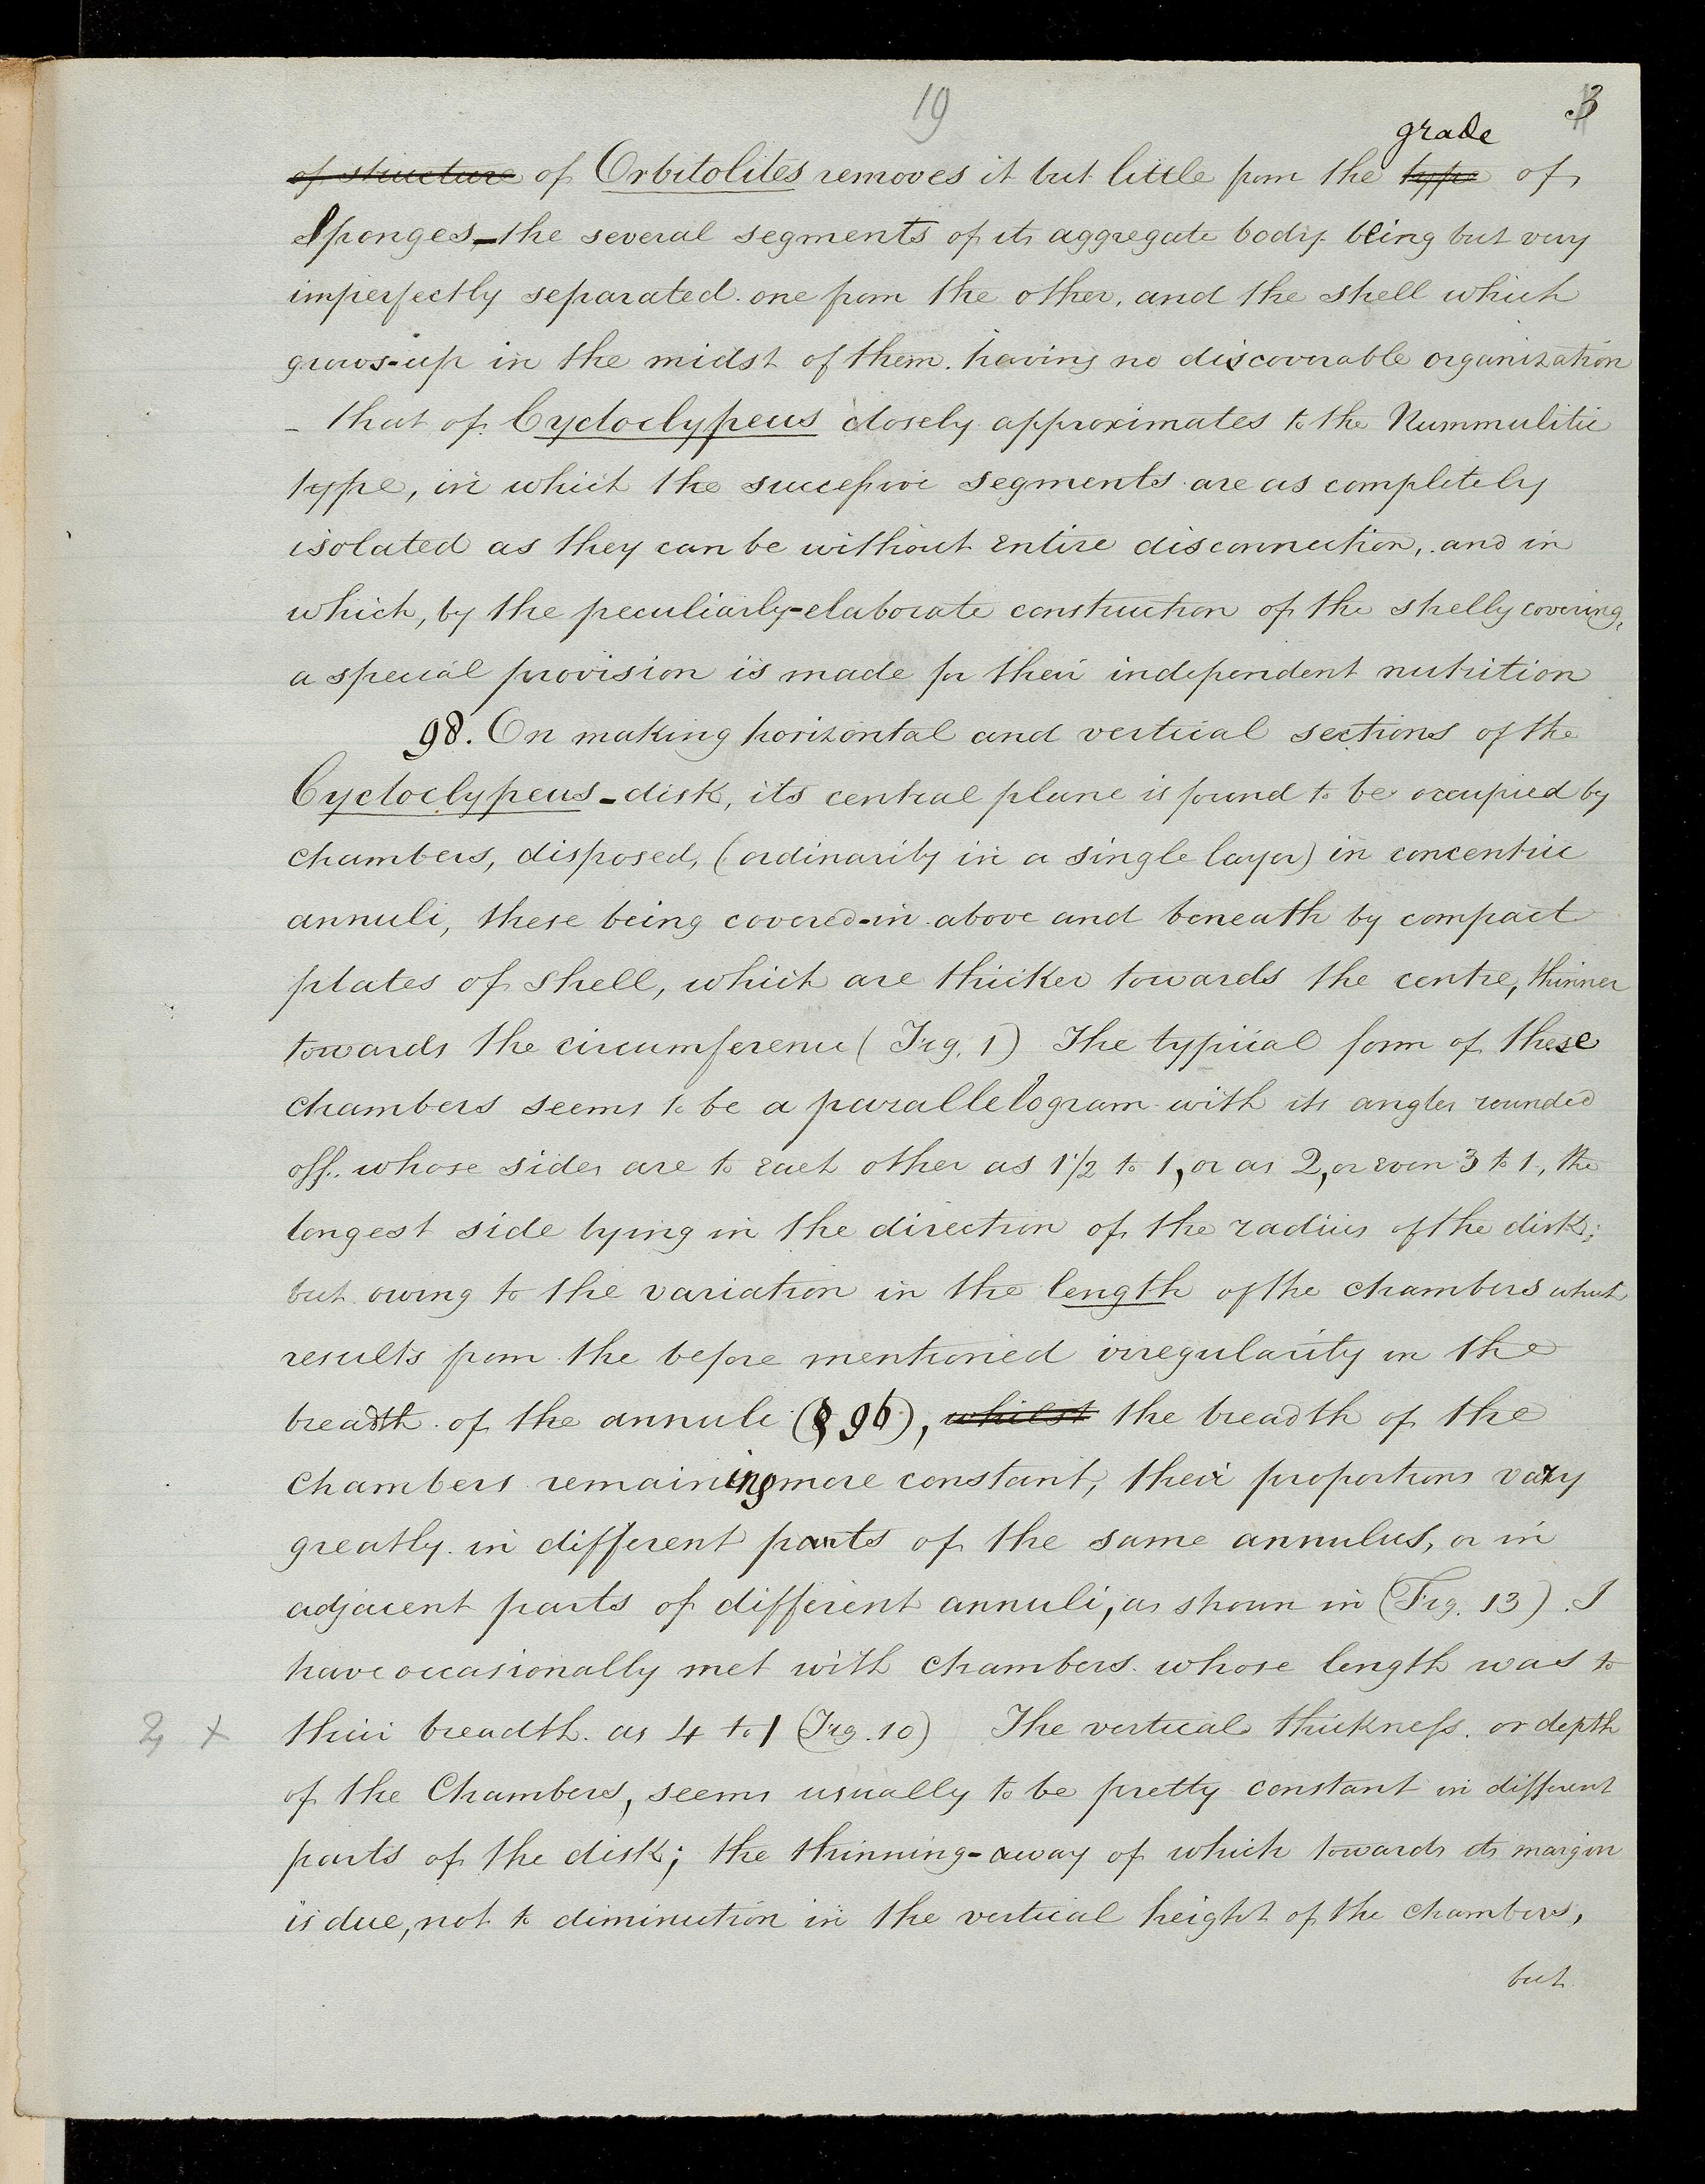 19
3
grade
of structure of Orbitolites removes it but little from the type of
Sponges_the several segments of its aggregate body being but very
imperfectly separated one from the other, and the shell which
grows-up in the midst of them having no discoverable organization
- that of Cycloclypeus closely approximates to the Nummulitic
type, in which the successive segments are as completely
isolated as they can be without entire disconnection, and in
which, by the peculiarly-elaborate construction of the shelly covering,
a special provision is made for their independent nutrition
98. On making horizontal and vertical sections of the
Cycloclypeus-disk, its central plane is found to be occupied by
chambers, disposed, (ordinarily in a single layer) in concentric
annuli, these being covered-in above and beneath by compact
plates of shell, which are thicker towards the centre, thinner
towards the circumference (Fig. 1) The typical form of these
chambers seems to be a parallelogram with its angles rounded
off, whose sides are to each other as 1 1/2 to 1, or as 2, or even 3 to 1, the
longest side lying in the direction of the radius of the disk;
but owing to the variation in the length of the chambers which
results from the before mentioned irregularity in the
breadth of the annuli (§ 96), whilst the breadth of the
chambers remaining more constant, their proportions vary
greatly in different parts of the same annulus, or in
adjacent parts of different annuli, as shown in (Fig. 13). I
have occasionally met with chambers whose length was to
their breadth as 4 to 1 (Fig. 10) The vertical thickness or depth
of the Chambers, seems usually to be pretty constant in different
parts of the disk; the thinning-away of which towards its margin
is due, not to diminution in the vertical height of the chambers,
but